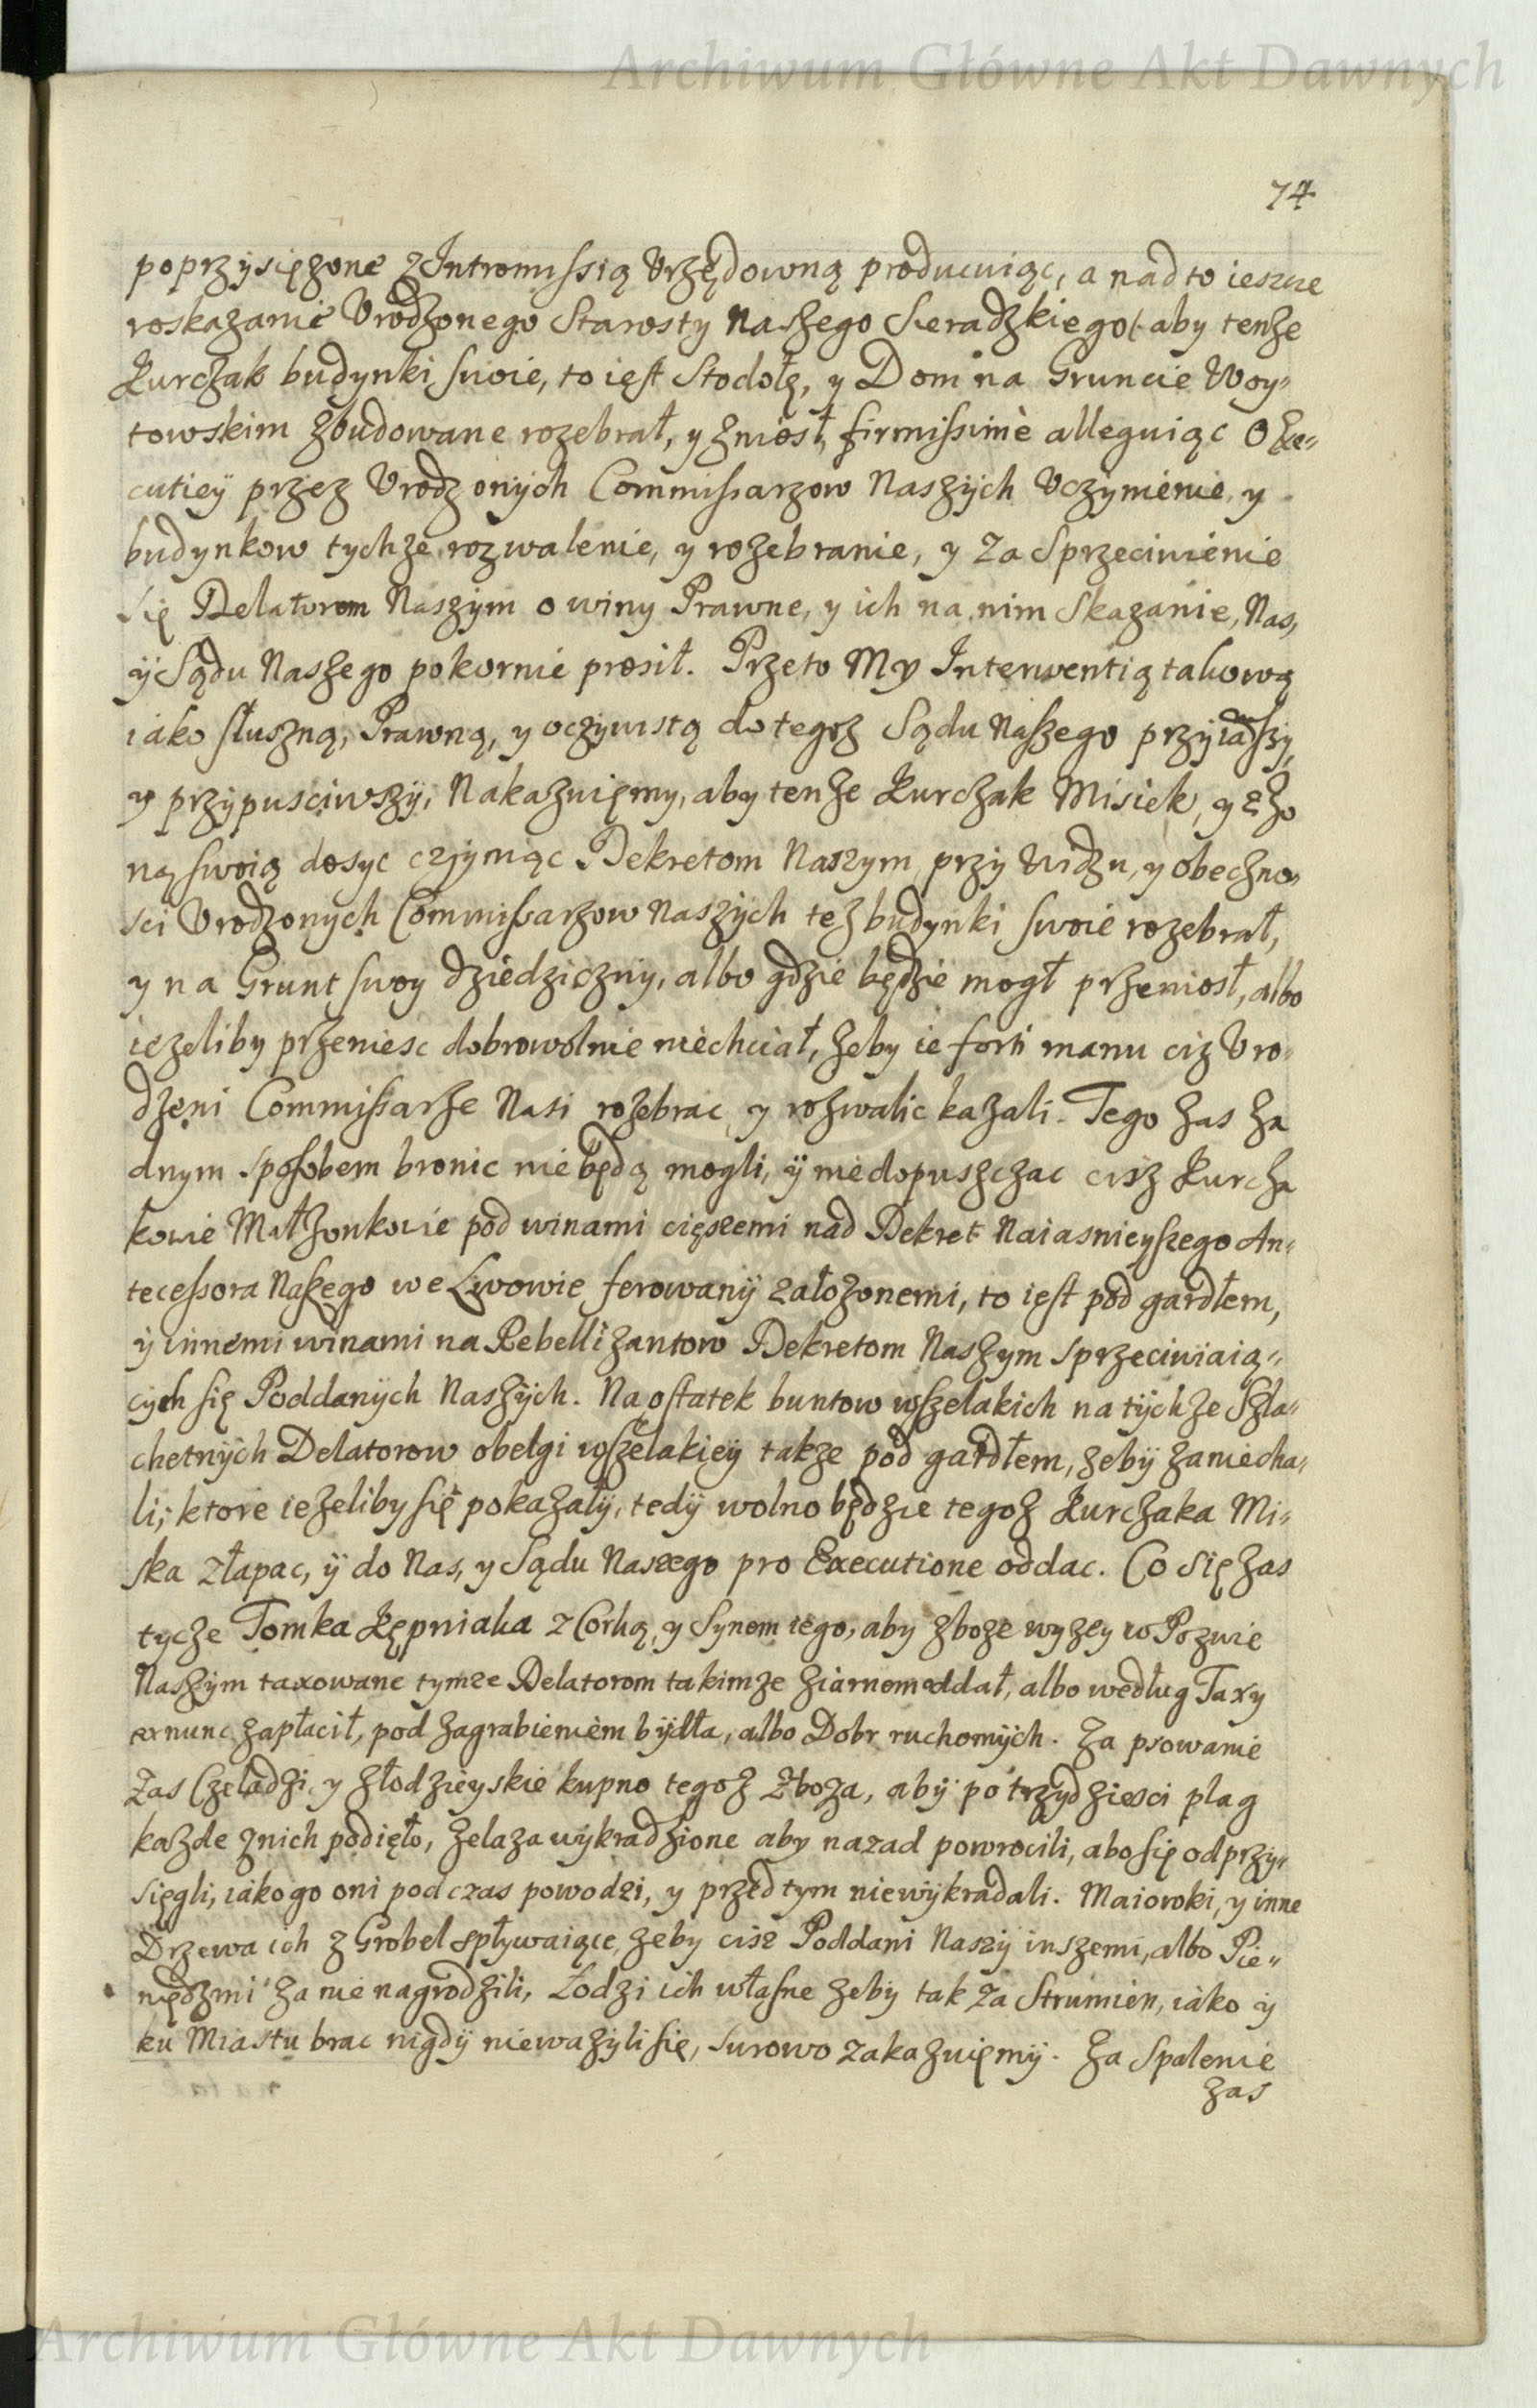 Archiwum Główne Akt Dawnych
74
poprzysięzone z Intromissią Vrzędowną producuiąc, a nad to ieszcze
roskazanie Vrodzonego Starosty Naszego Sieradzkiego aby tenze
Kurczak budynki swoie, to iest Stodołę, y Dom na Gruncie Woy-
towskim zbudowane rozebrał, y zniosł, firmissimè alleguiąc O Exe-
cutiey przez Vrodzonych Commissarzow Naszych Vczynienie, y
budynkow tychze rozwalenie, y rozebranie, y za Sprzeciwienie
się Delatorom Naszym o winy Prawne, y ich na nim Skazanie, Nas,
y Sądu Naszego pokornie prosił. Przeto My Interwentią takową
iako słuszną, Prawną, y oczywistą do tegoz Sądu Naszego przyiąwszy,
y przypusciwszy, Nakazuięmy, aby tenze Kurczak Misiek, y z Zo
ną swoią dosyc czyniąc Dekretom Naszym, przy Widzu, y obeczno-
sci Vrodzonych Commissarzow Naszych tez budynki swoie rozebrał,
y na Grunt swoy dziedziczny, albo gdzie będzie mogł przeniosł, albo
iezeliby przeniesc dobrowolnie niechciał, zeby ie forti manu ciz Vro-
dzeni Commissarze Nasi rozebrac, y rozwalic kazali. Tego zas za
dnym sposobem bronic nie będą mogli, y niedopuszczac cisz Kurcza
kowie Małzonkowie pod winami cięszemi nad Dekret Naiasnieyszego An-
tecessora Naszego we Lwowie ferowany załozonemi, to iest pod gardłem,
y innemi winami na Rebellizantow Dekretom Naszym sprzeciwiaią-
cych się Poddanych Naszych. Na ostatek buntow wszelakich na tychze Szla-
chetnych Delatorow obelgi wszelakiey takze pod gardłem, zeby zaniecha-
li; ktore iezeliby się pokazały, tedy wolno będzie tegoz Kurczaka Mi-
ska złapac, y do Nas, y Sądu Naszego pro Executione oddac. Co się zas
tycze Tomka Kępniaka z Corką, y Synem iego, aby zboze wyzey w Pozwie
Naszym taxowane tymze Delatorom takimze ziarnem oddał, albo według Taxy
ex nunc zapłacił, pod zagrabieniem bydła, albo Dobr ruchomych. Za psowanie
zas Czeladzi, y złodzieyskie kupno tegoz Zboza, aby po trzydziesci plag
kazde z nich podięło, zelaza wykradzione aby nazad powrocili, abo się odprzy-
sięgli, iako go oni podczas powodzi, y przed tym niewykradali. Maiowki, y inne
Drzewa ich z Grobel spływaiące, zeby cisz Poddani Naszy inszemi, albo Pie-
niędzmi za nie nagrodzili, Łodzi ich własne zeby tak za Strumien, iako y
ku Miastu brac nigdy niewazyli się, surowo zakazuięmy. Za Spalenie
zas
Archiwum Główne Akt Dawnych